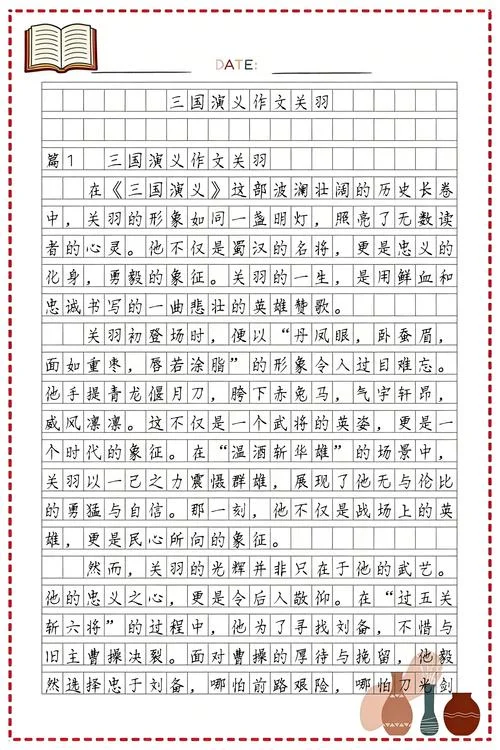 DATE:
三国演义作文关羽
篇1 三国演义作文关羽
在《三国演义》这部波澜壮阔的历史长卷
中，关羽的形象如同一盏明灯，照亮了无数读
者的心灵。他不仅是蜀汉的名将，更是忠义的
化身，勇毅的象征。关羽的一生，是用鲜血和
忠诚书写的一曲悲壮的英雄赞歌。
关羽初登场时，便以“丹凤眼，卧蚕眉，
面如重枣，唇若涂脂”的形象令人过目难忘。
他手提青龙偃月刀，胯下赤兔马，气宇轩昂，
威风凛凛。这不仅是一个武将的英姿，更是一
个时代的象征。在“温酒斩华雄”的场景中，
关羽以一己之力震慑群雄，展现了他无与伦比
的勇猛与自信。那一刻，他不仅是战场上的英
雄，更是民心所向的象征。
然而，关羽的光辉并非只在于他的武艺。
他的忠义之心，更是令后人敬仰。在“过五关
斩六将”的过程中，他为了寻找刘备，不惜与
旧主曹操决裂。面对曹操的厚待与挽留，他毅
然选择忠于刘备，哪怕前路艰险，哪怕刀光剑